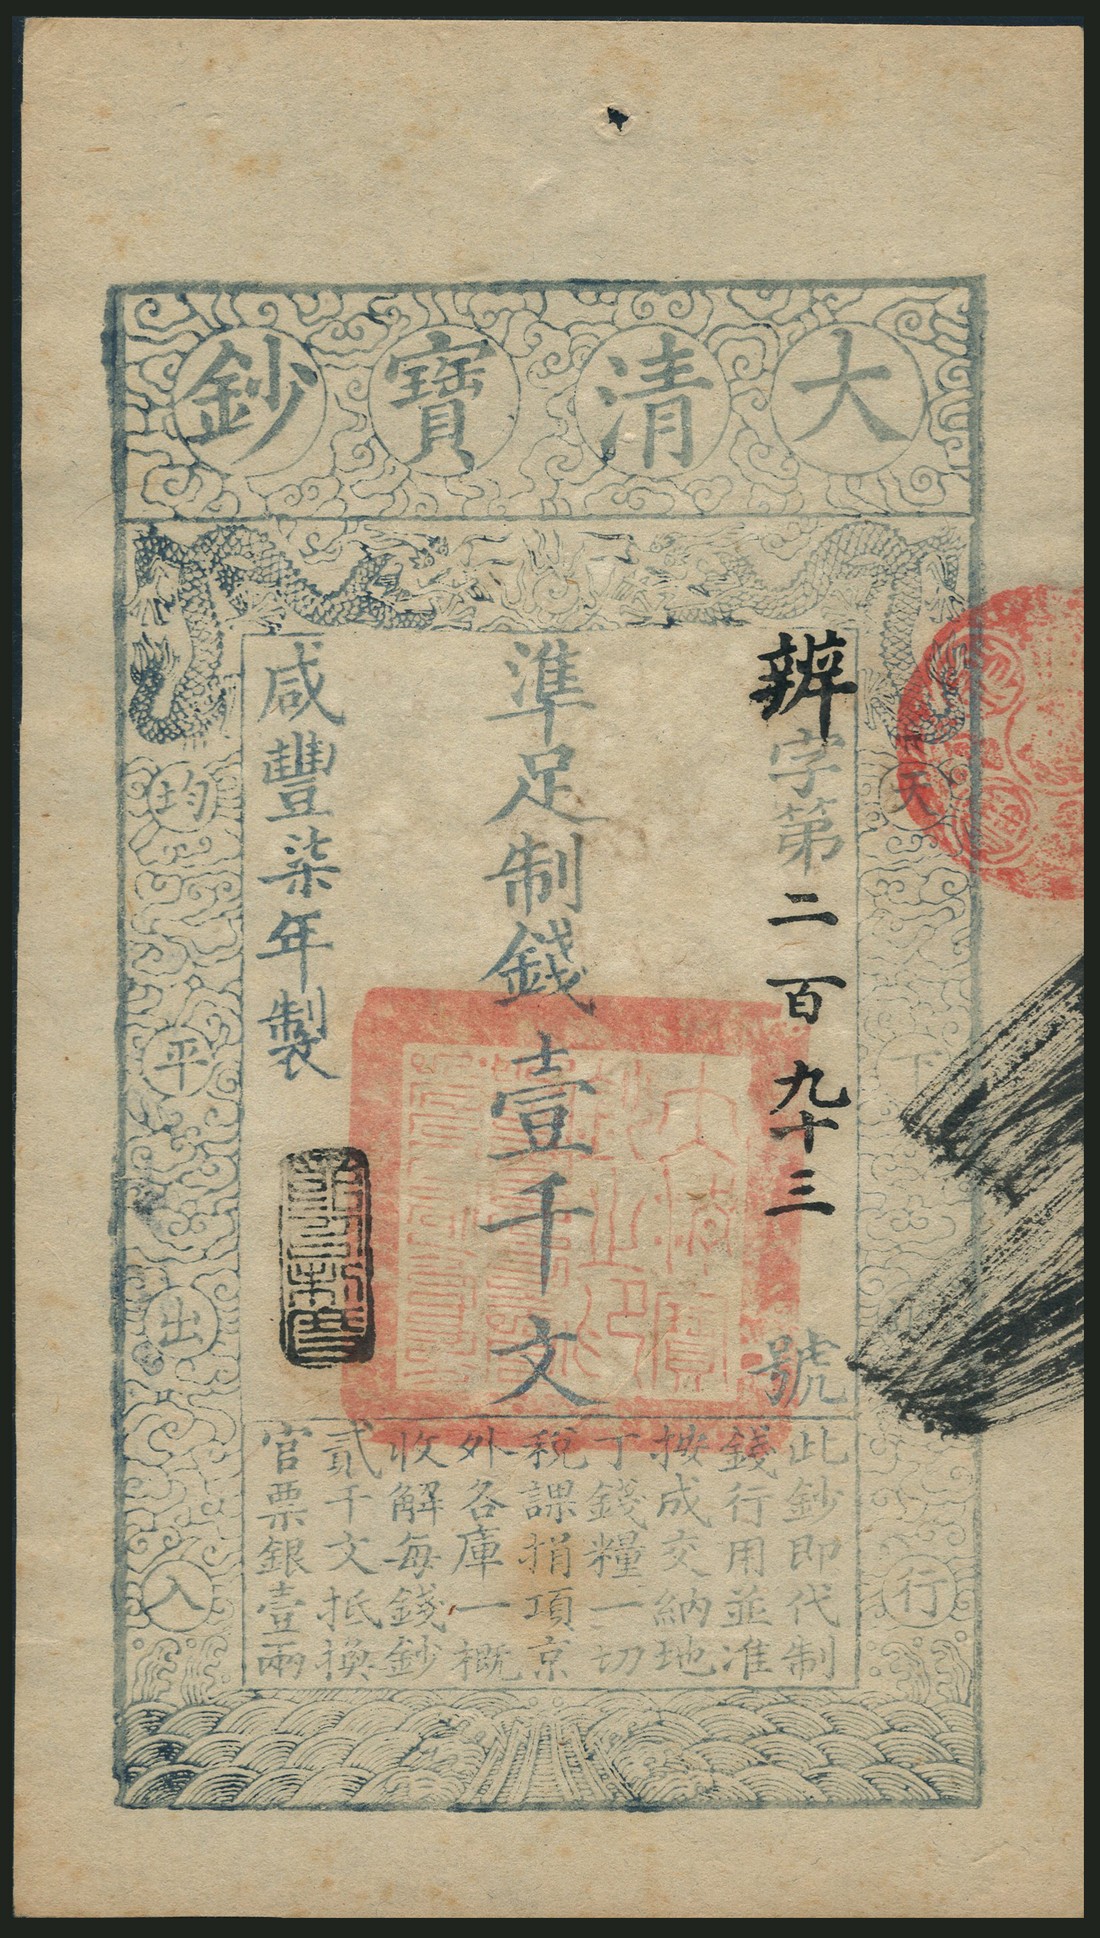 大清寶鈔
天下通行
均平出入
辦字第二百九十三號
準足制錢壹千文
咸豐柒年製
此鈔即代制
錢行用並准
按成交納地
丁錢糧一切
稅課捐項京
外各庫一概
收解每錢鈔
貳千文抵換
官票銀壹兩